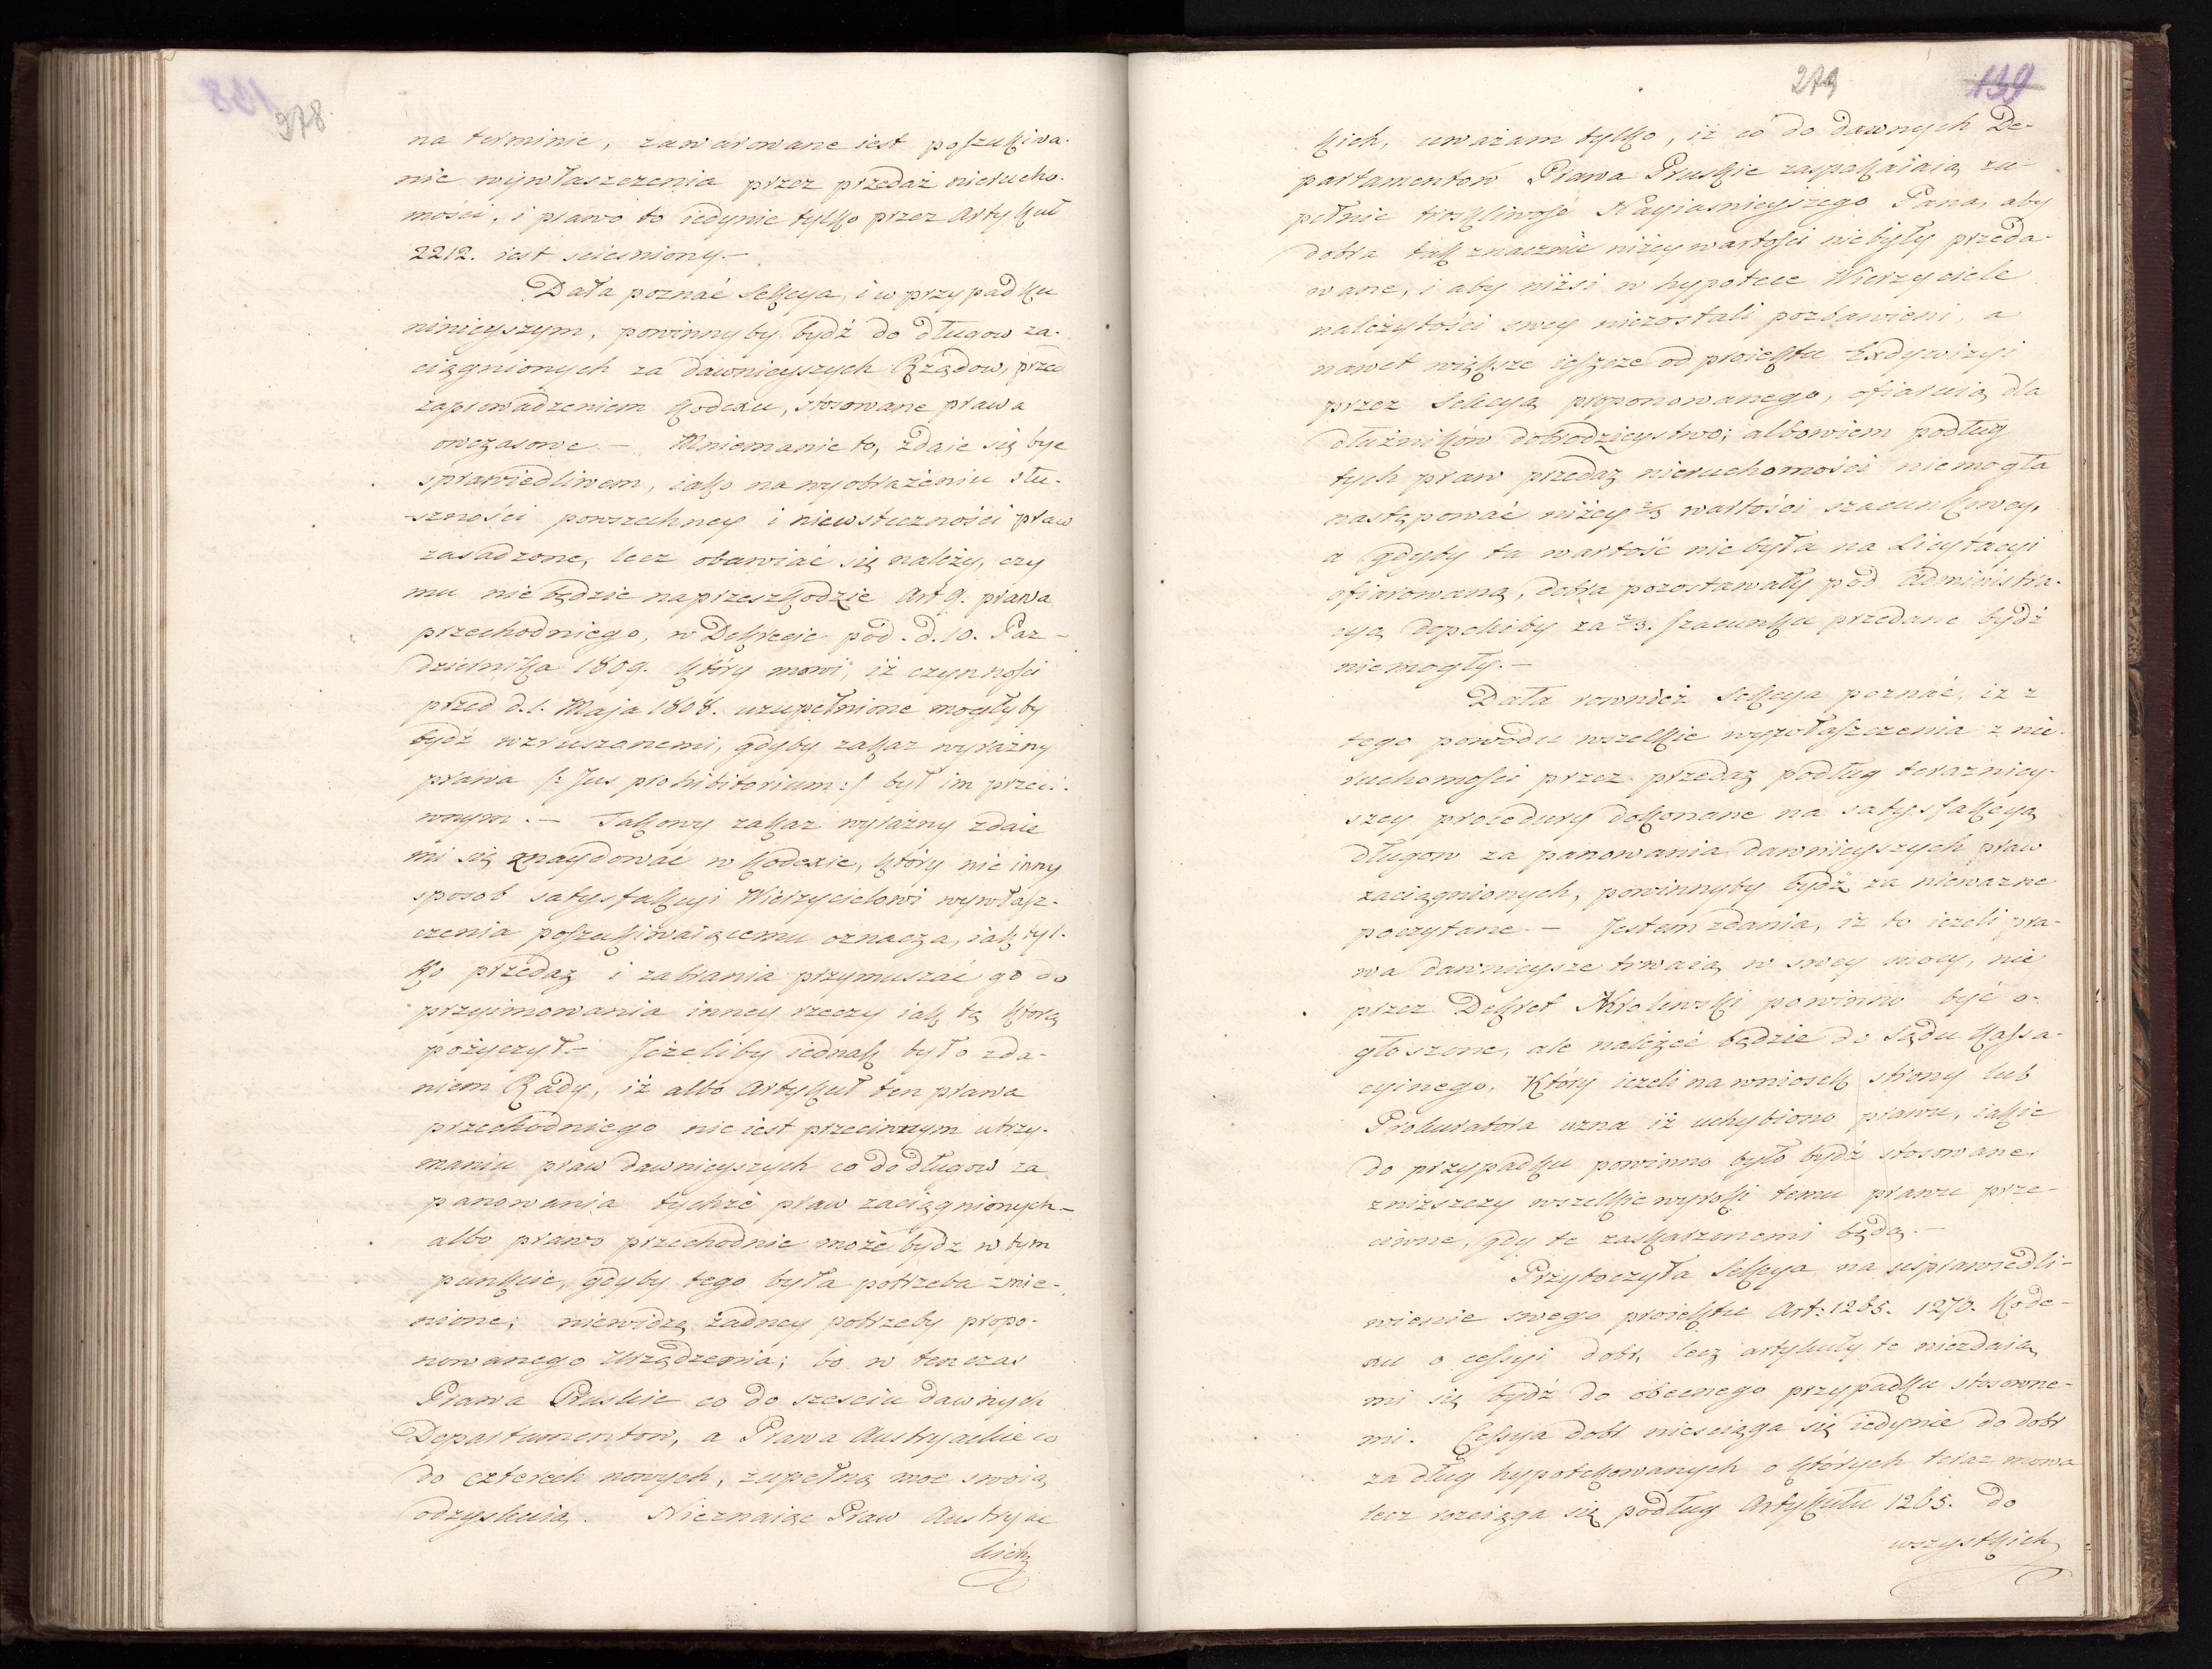 278
na terminie, zawarowane iest poszukiwa-
nie wywłaszczenia przez przedaż nierucho-
mości, i prawo to iedynie tylko przez Artykuł
2212. iest scieśniony.—
Dała poznać Sekcya, i w przypadku
ninieyszym, powinny by bydź do długow za-
ciągnionych za dawnieyszych Rządow, przed
zaprowadzeniem Kodexu, stosowane prawa
owczasowe — Mniemanie to, zdaie się być
sprawiedliwem, iako na wyobrażeniu słu-
szności powszechney i niewsteczności praw
zasadzone, lecz obawiać się należy, czy
mu nie będzie na przeszkodzie Art 9. prawa
przechodniego, w Dekrecie pod. d. 10. Paz-
dziernika 1809. który mowi, iż czynności
przed d. 1. Maja 1808. uzupełnione mogłyby
bydź wzruszanemi, gdyby zakaz wyraźny
prawa /: Jus prohibitorium :/ był im przeci-
wnym. — Takowy zakaz wyraźny zdaie
mi się znaydować w Kodexie, który nie inny
sposob satysfakcyi Wierzycielowi wywłasz-
czenia poszukiwaiącemu oznacza, iak tyl-
ko przedaz i zabrania przymuszać go do
przyimowania inney rzeczy iak tę ktorą
pożyczył.— Jeżeliby iednak było zda-
niem Rady, iż albo Artykuł ten prawa
przechodniego nie iest przeciwnym utrzy-
maniu praw dawnieyszych co do długow za
panowania tychże praw zaciągnionych—
albo prawo przechodnie może bydz w tym
punkcie, gdyby tego była potrzeba zmie-
nione; niewidzę żadney potrzeby propo-
nowanego Urządzenia; bo w ten czas
Prawa Pruskie co do szesciu dawnych
Departamentow, a Prawa Austryackie co
do czterech nowych, zupełną moc swoią
odzyskuią. Nieznaiąc Praw Austryac
kich
279
139
kich, uważam tylko, iż co do dawnych De-
partamentow Prawa Pruskie zaspakaiaią zu-
pełnie troskliwość Nayiasnieyszego Pana, aby
dobra tak znacznie niżey wartości niebyły przeda-
wane, i aby niżsi w hypotece Wierzyciele
należytości swey niezostali pozbawieni, a
nawet większe ieszcze od proiektu Exdywizyi
przez Sekcyą proponowanego, ofiaruią dla
dłużników dobrodzieystwo; albowiem podług
tych praw przedaz nieruchomości niemogła
następować niżey 2/3 wartości szacunkowey,
a gdyby ta wartość nie była na Licytacyi
ofiarowaną, dobra pozostawały pod Administra-
cyą dopokiby za 2/3. szacunku przedane bydź
niemogły.—
Dała rownież Sekcya poznać, iz z
tego powodu wszelkie wywłaszczenia z nie-
ruchomości przez przedaz podług terazniey-
szey procedury dokonane na satysfakcyą
długow za panowania dawnieyszych praw
zaciągnionych, powinnyby bydź za niewazne
poczytane — Jestem zdania, iz to iezeli pra-
wa dawnieysze trwaią w swey mocy, nie
przez Dekret Krolewski powinno być o-
głoszone, ale należeć będzie do Sądu Kassa-
cyinego, Który iezeli na wniosek strony lub
Prokuratora uzna iż uchybiono prawu, iakie
do przypadku powinno było bydź stosowane,
zniższczy wszelkie wyroki temu prawu prze-
ciwne, gdy te zaskarzonemi będą.—
Przytoczyła Sekcya na usprawiedli-
wienie swego proiektu Art: 1265. 1270. Kode-
xu o cessyi dobr, lecz artykuły te niezdaią
mi się bydź do obecnego przypadku stosowne-
mi. Cessya dobr niesciąga się iedynie do dobr
za dług hypotekowanych o których teraz mowa
lecz rozciąga się podług Artykułu 1265. do
wszystkich